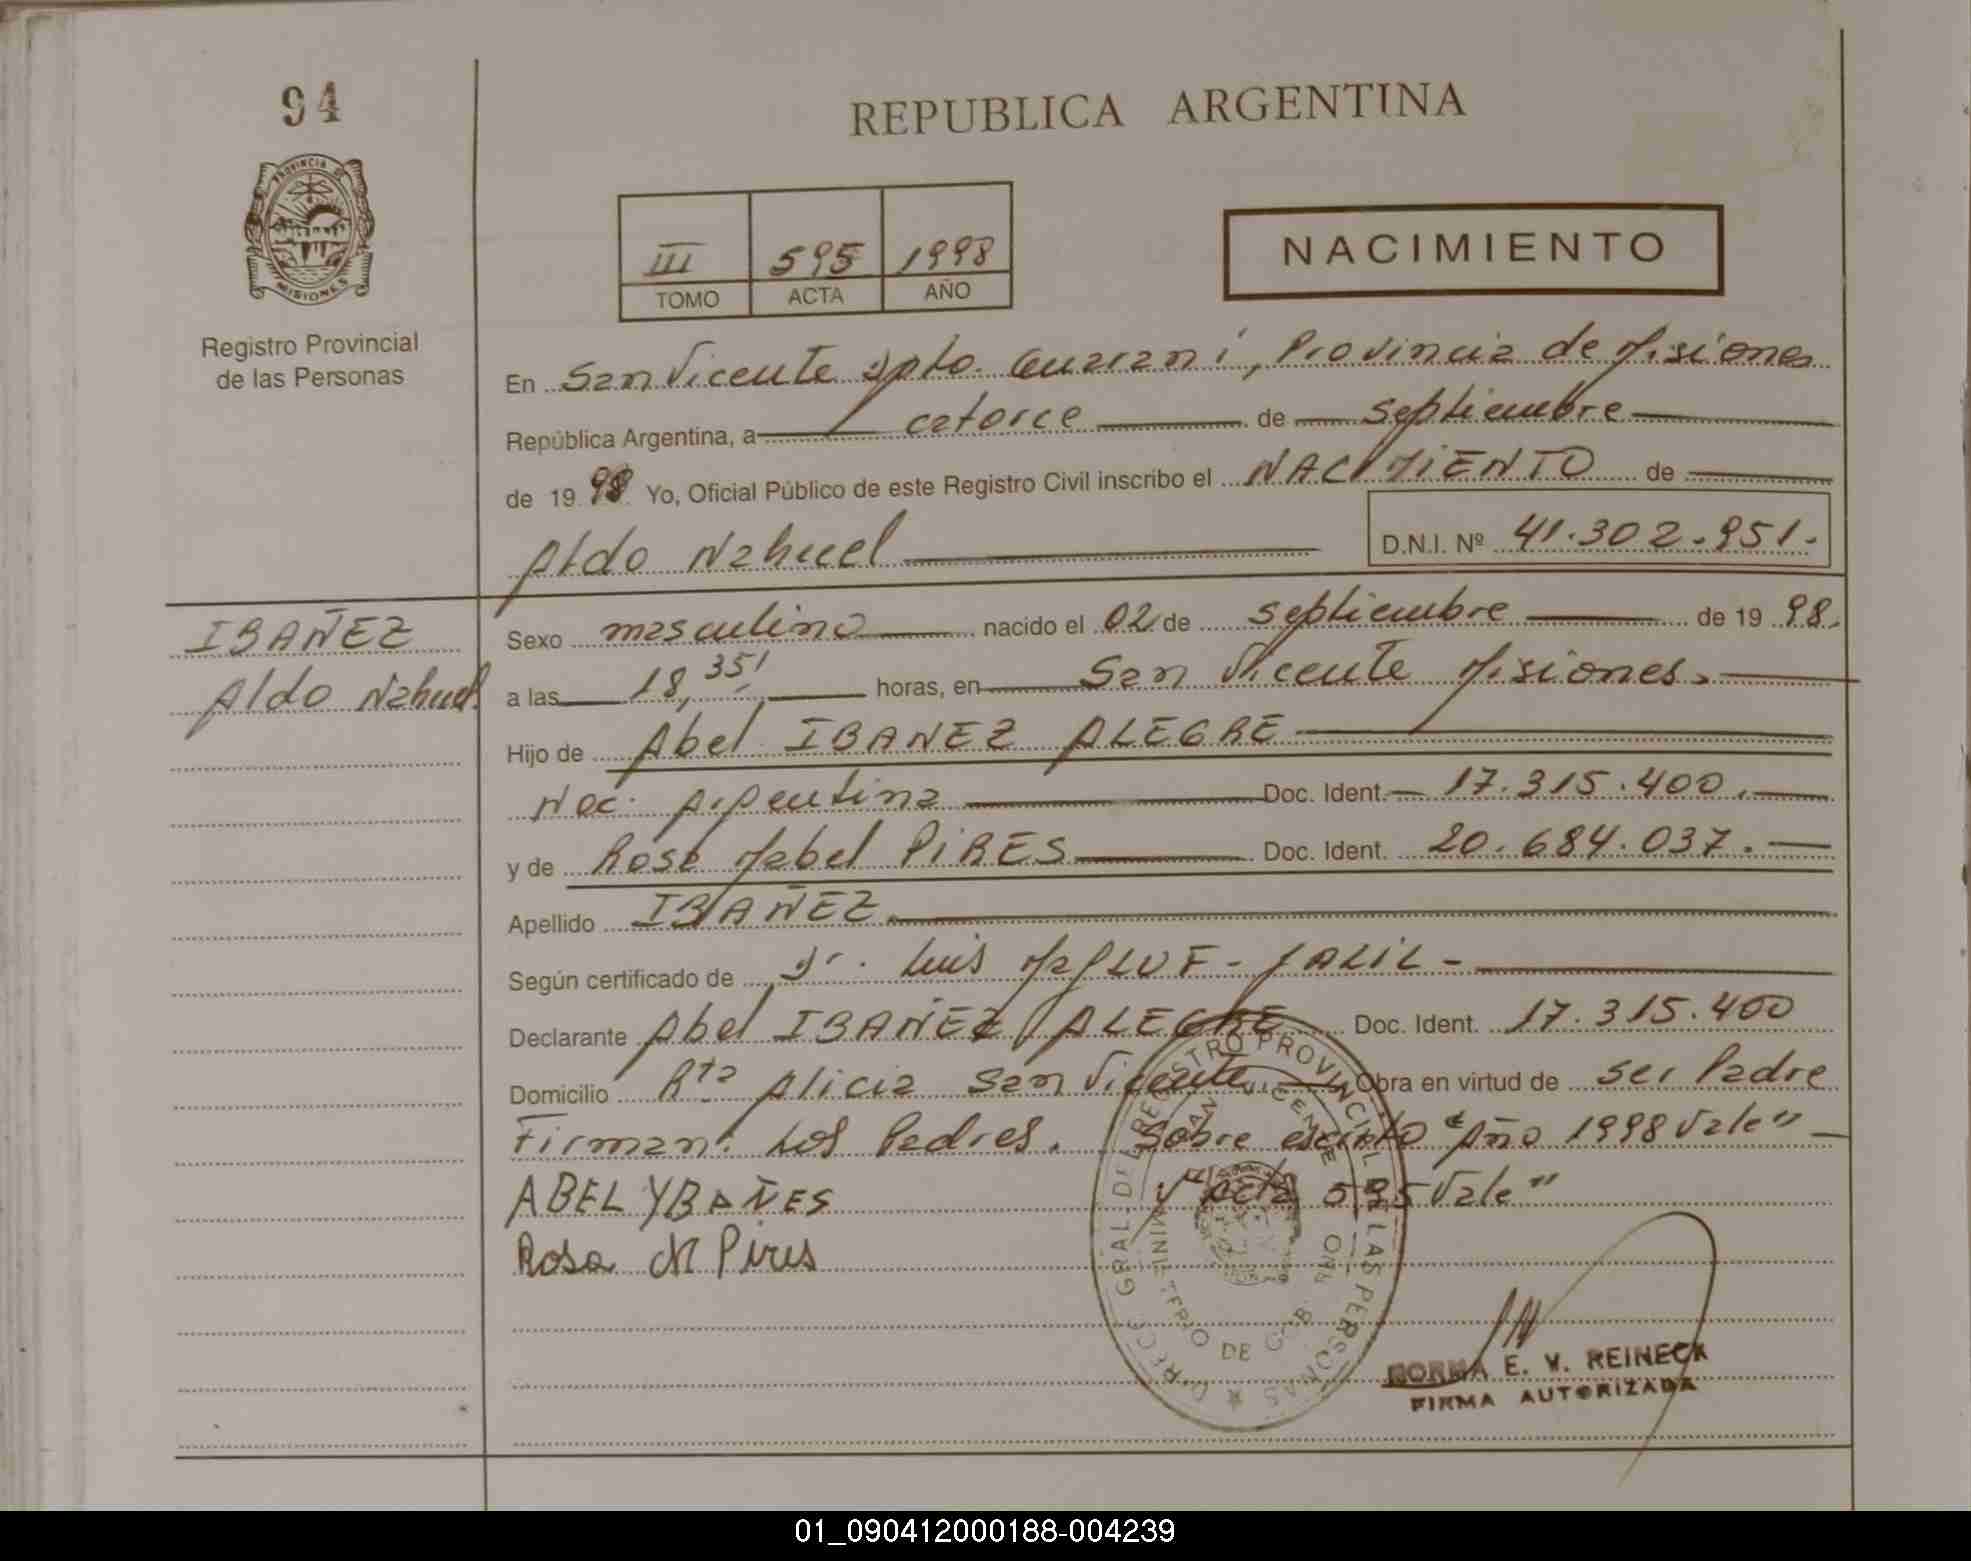 94
REPUBLICA ARGENTINA
PROVINCIA DE
MISIONES
Registro Provincial
de las Personas
III 595 1998
TOMO ACTA AÑO
NACIMIENTO
En San Vicente Dpto. Guarani, Provincia de Misiones
República Argentina, a catorce de septiembre
de 19 98 Yo, Oficial Público de este Registro Civil inscribo el NACIMIENTO de
Aldo Nahuel D.N.I. Nº 41.302.951.
IBAÑEZ
Aldo Nahuel
Sexo masculino nacido el 02 de septiembre de 19 98.
a las 18,35' horas, en San Vicente Misiones.
Hijo de Abel IBAÑEZ ALEGRE
Nac. Argentina Doc. Ident. 17.315.400.
y de Rosa Mabel PIRES Doc. Ident. 20.684.037.
Apellido IBAÑEZ
Según certificado de Dr. Luis JALIL
Declarante Abel IBAÑEZ ALEGRE Doc. Ident. 17.315.400
Domicilio Rta Alicia San Vicente Obra en virtud de ser Padre
Firman: Los Padres. Sobre escrito "Año 1998 Vale"
y "acta 595 Vale"
ABEL YBAÑES
Rosa M Pires
DIRECC. GRAL. DEL REGISTRO PROVINCIAL DE LAS PERSONAS
SAN VICENTE
MINISTERIO DE GOB.
NORMA E. V. REINECK
FIRMA AUTORIZADA
01_090412000188-004239